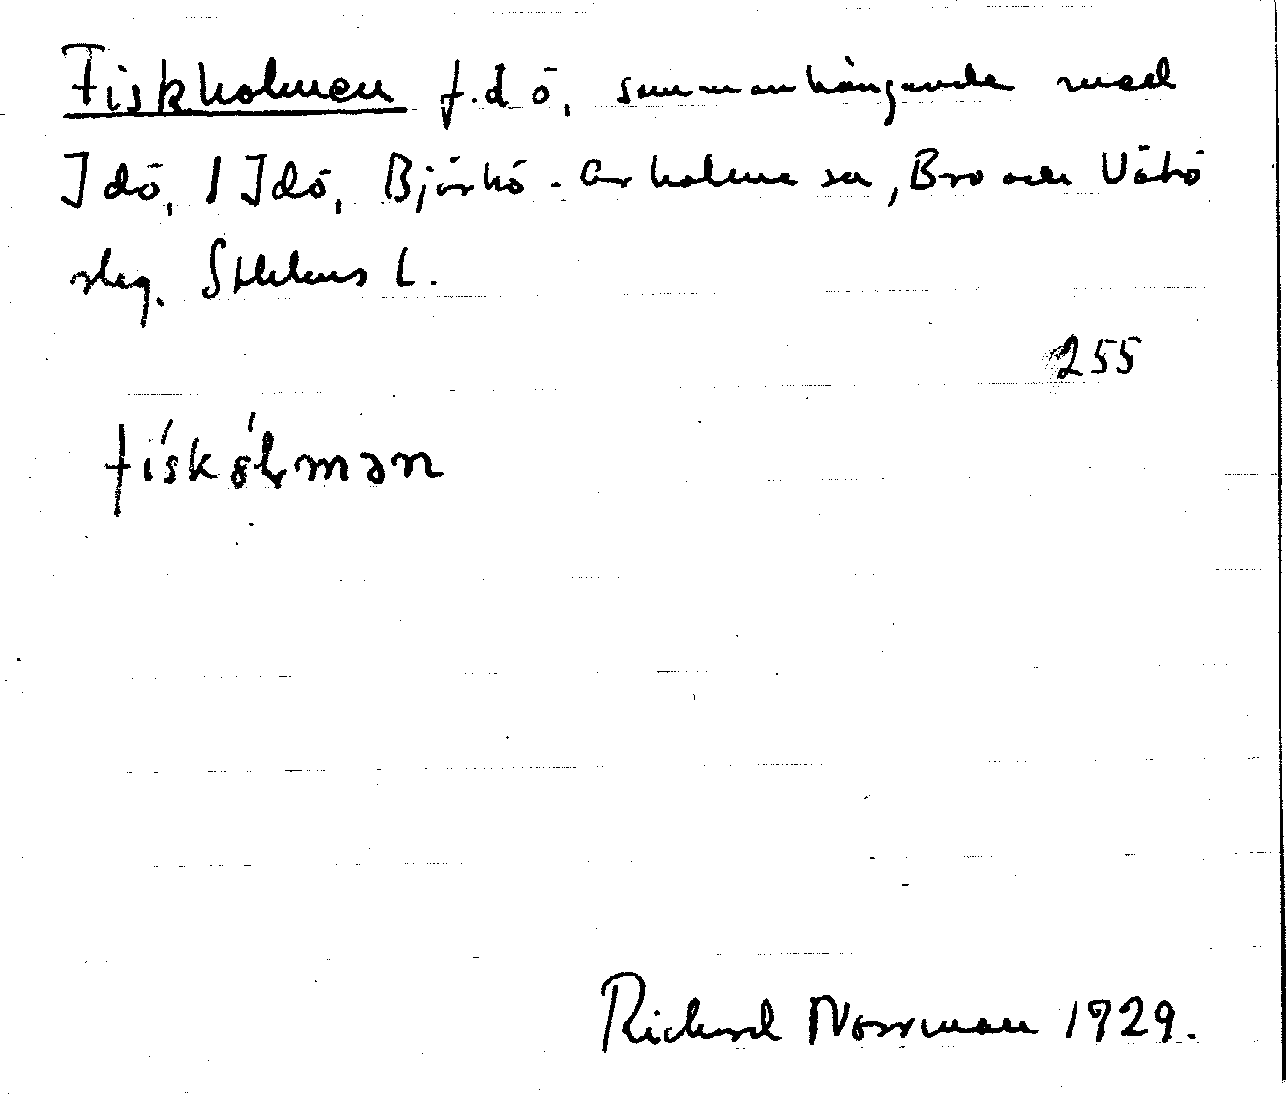 Fiskholmen f.d ö, sammanhängande med
Idö, / Idö, Björkö-Arholma sn, Bro och Vätö
skg. Sthlms l.
255
fískólmən
Richard Norrman 1929.